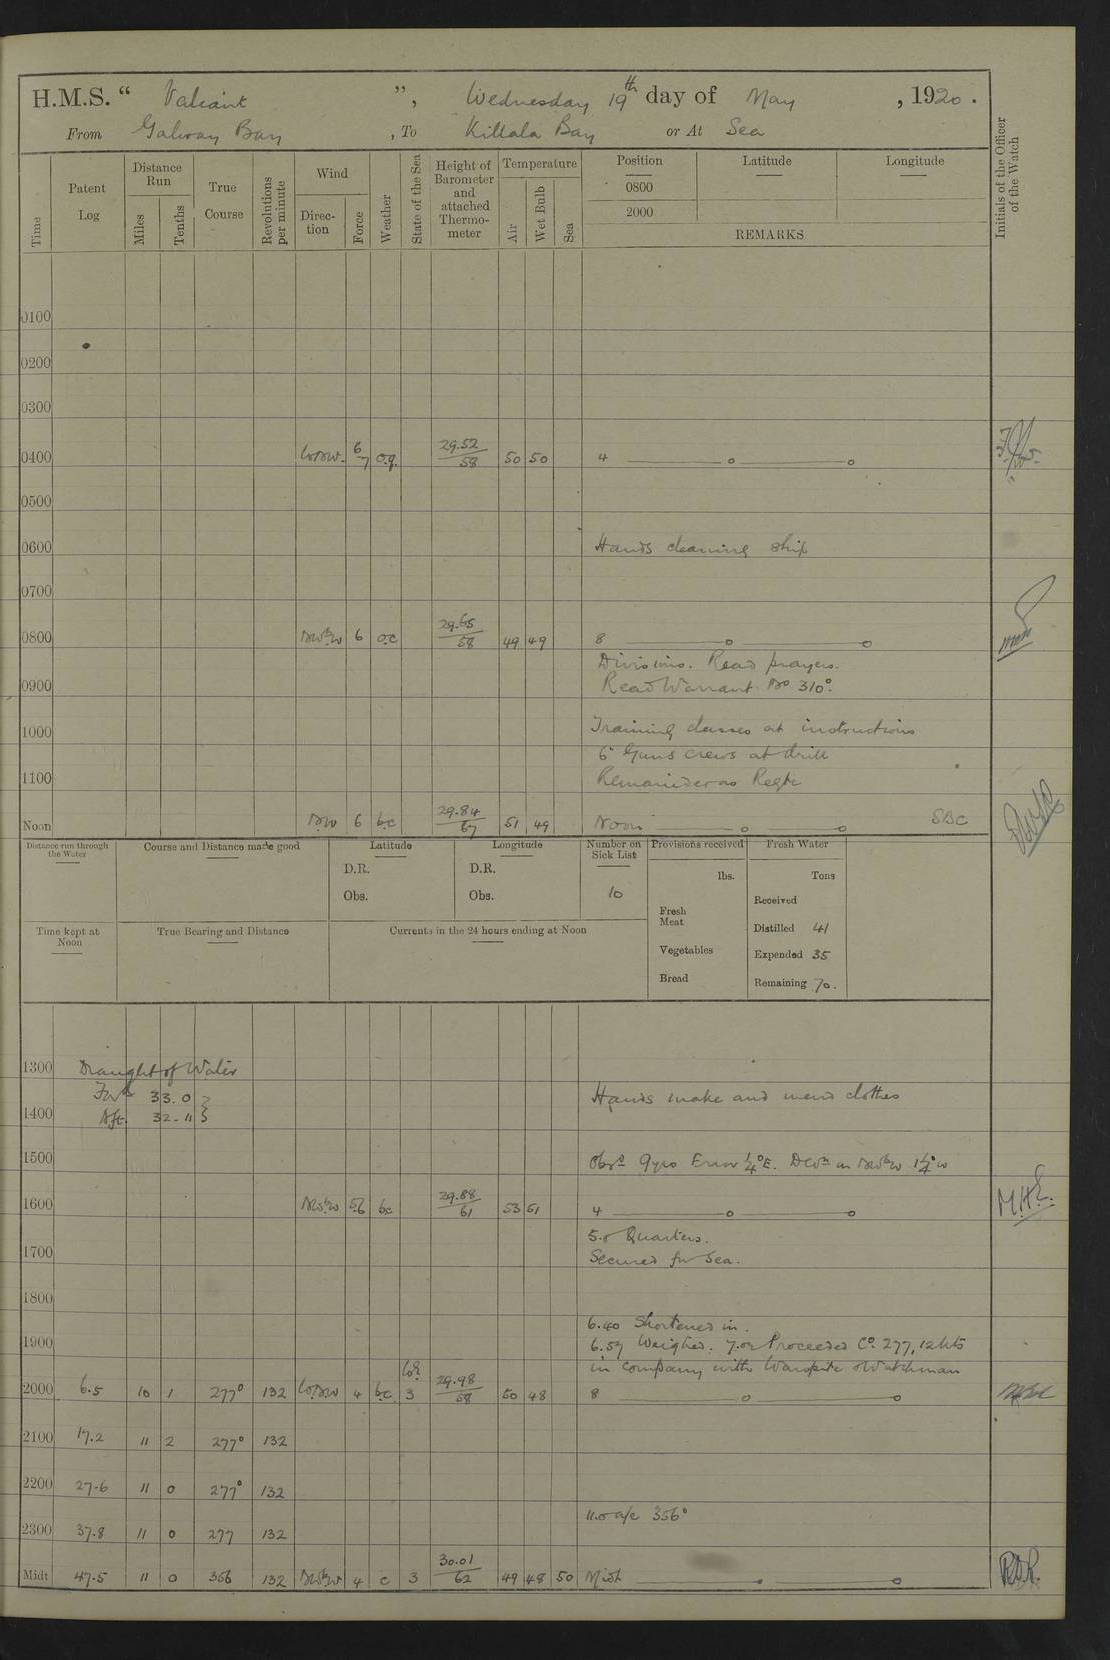 H.M.S. “ Valiant ”, Wednesday 19th day of May , 1920.
From Galway Bay , To Killala Bay or At Sea
Time
Patent Log
Distance Run
Miles
Tenths
True Course
Revolutions per minute
Wind
Direction
Force
Weather
State of the Sea
Height of Barometer and attached Thermometer
Temperature
Air
Wet Bulb
Sea
Position Latitude Longitude
0800
2000
REMARKS
Initials of the Officer of the Watch
0100
0200
0300
0400 WNW. 6-7 o.q. 29.52/58 50 50 4
0500
0600 Hands cleaning ship
0700
0800 NWbW 6 o.c 29.65/58 49 49 8
Divisions. Read prayers.
0900 Read Warrant No 310.
1000 Training classes at instructions
6" Guns crews at drill
1100 Remainder as Reqte
Noon NW 6 bc 29.84/67 51 49 Noon SBC
Distance run through the Water
Course and Distance made good
Latitude
D.R.
Obs.
Longitude
D.R.
Obs.
Number on Sick List
10
Provisions received
lbs.
Fresh Meat
Vegetables
Bread
Fresh Water
Tons
Received
Distilled 41
Expended 35
Remaining 70.
Time kept at Noon
True Bearing and Distance
Currents in the 24 hours ending at Noon
1300 Draught of Water
Ford 33.0
Hands make and mend clothes
1400 Aft. 32-11
1500 Obsd Gyro Error ¼°E. Devn on NWbW 1¼°W
1600 NWbW 5-6 bc 29.88/61 53 51 4 M.H.E.
5.0 Quarters.
1700 Secured for Sea.
1800
6.40 Shortened in.
1900 6.59 Weighed. 7.02 Proceeded Co. 277, 12 kts
in company with Warspite & Watchman
2000 6.5 10 1 277° 132 WNW 4 bc 3 29.98/58 50 48 8
2100 17.2 11 2 277° 132
2200 27.6 11 0 277° 132
11.0 a/c 356°
2300 37.8 11 0 277 132
Midt 47.5 11 0 356 132 NWbW 4 c 3 30.01/62 49 48 50 Midt